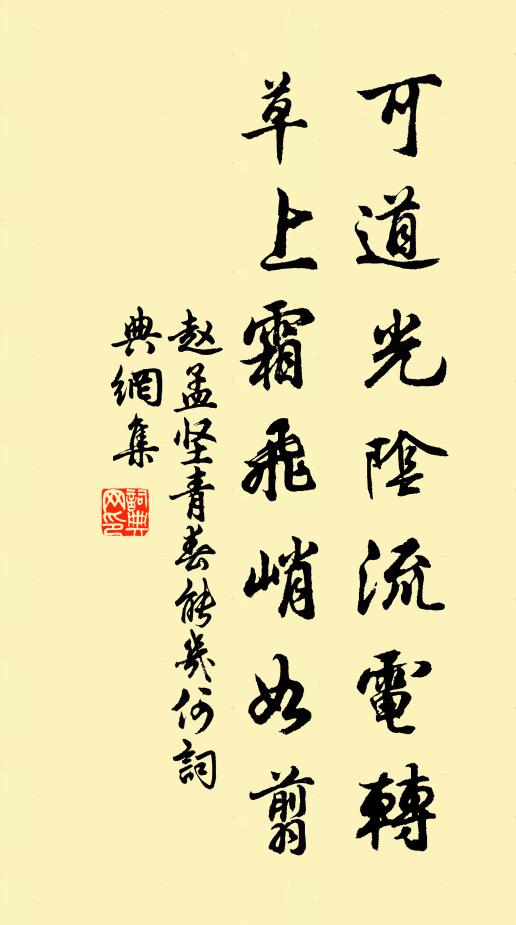 可道光陰流電轉
草上霜飛峭如翦
赵孟坚青春能幾何詞
典網集
詞典网印